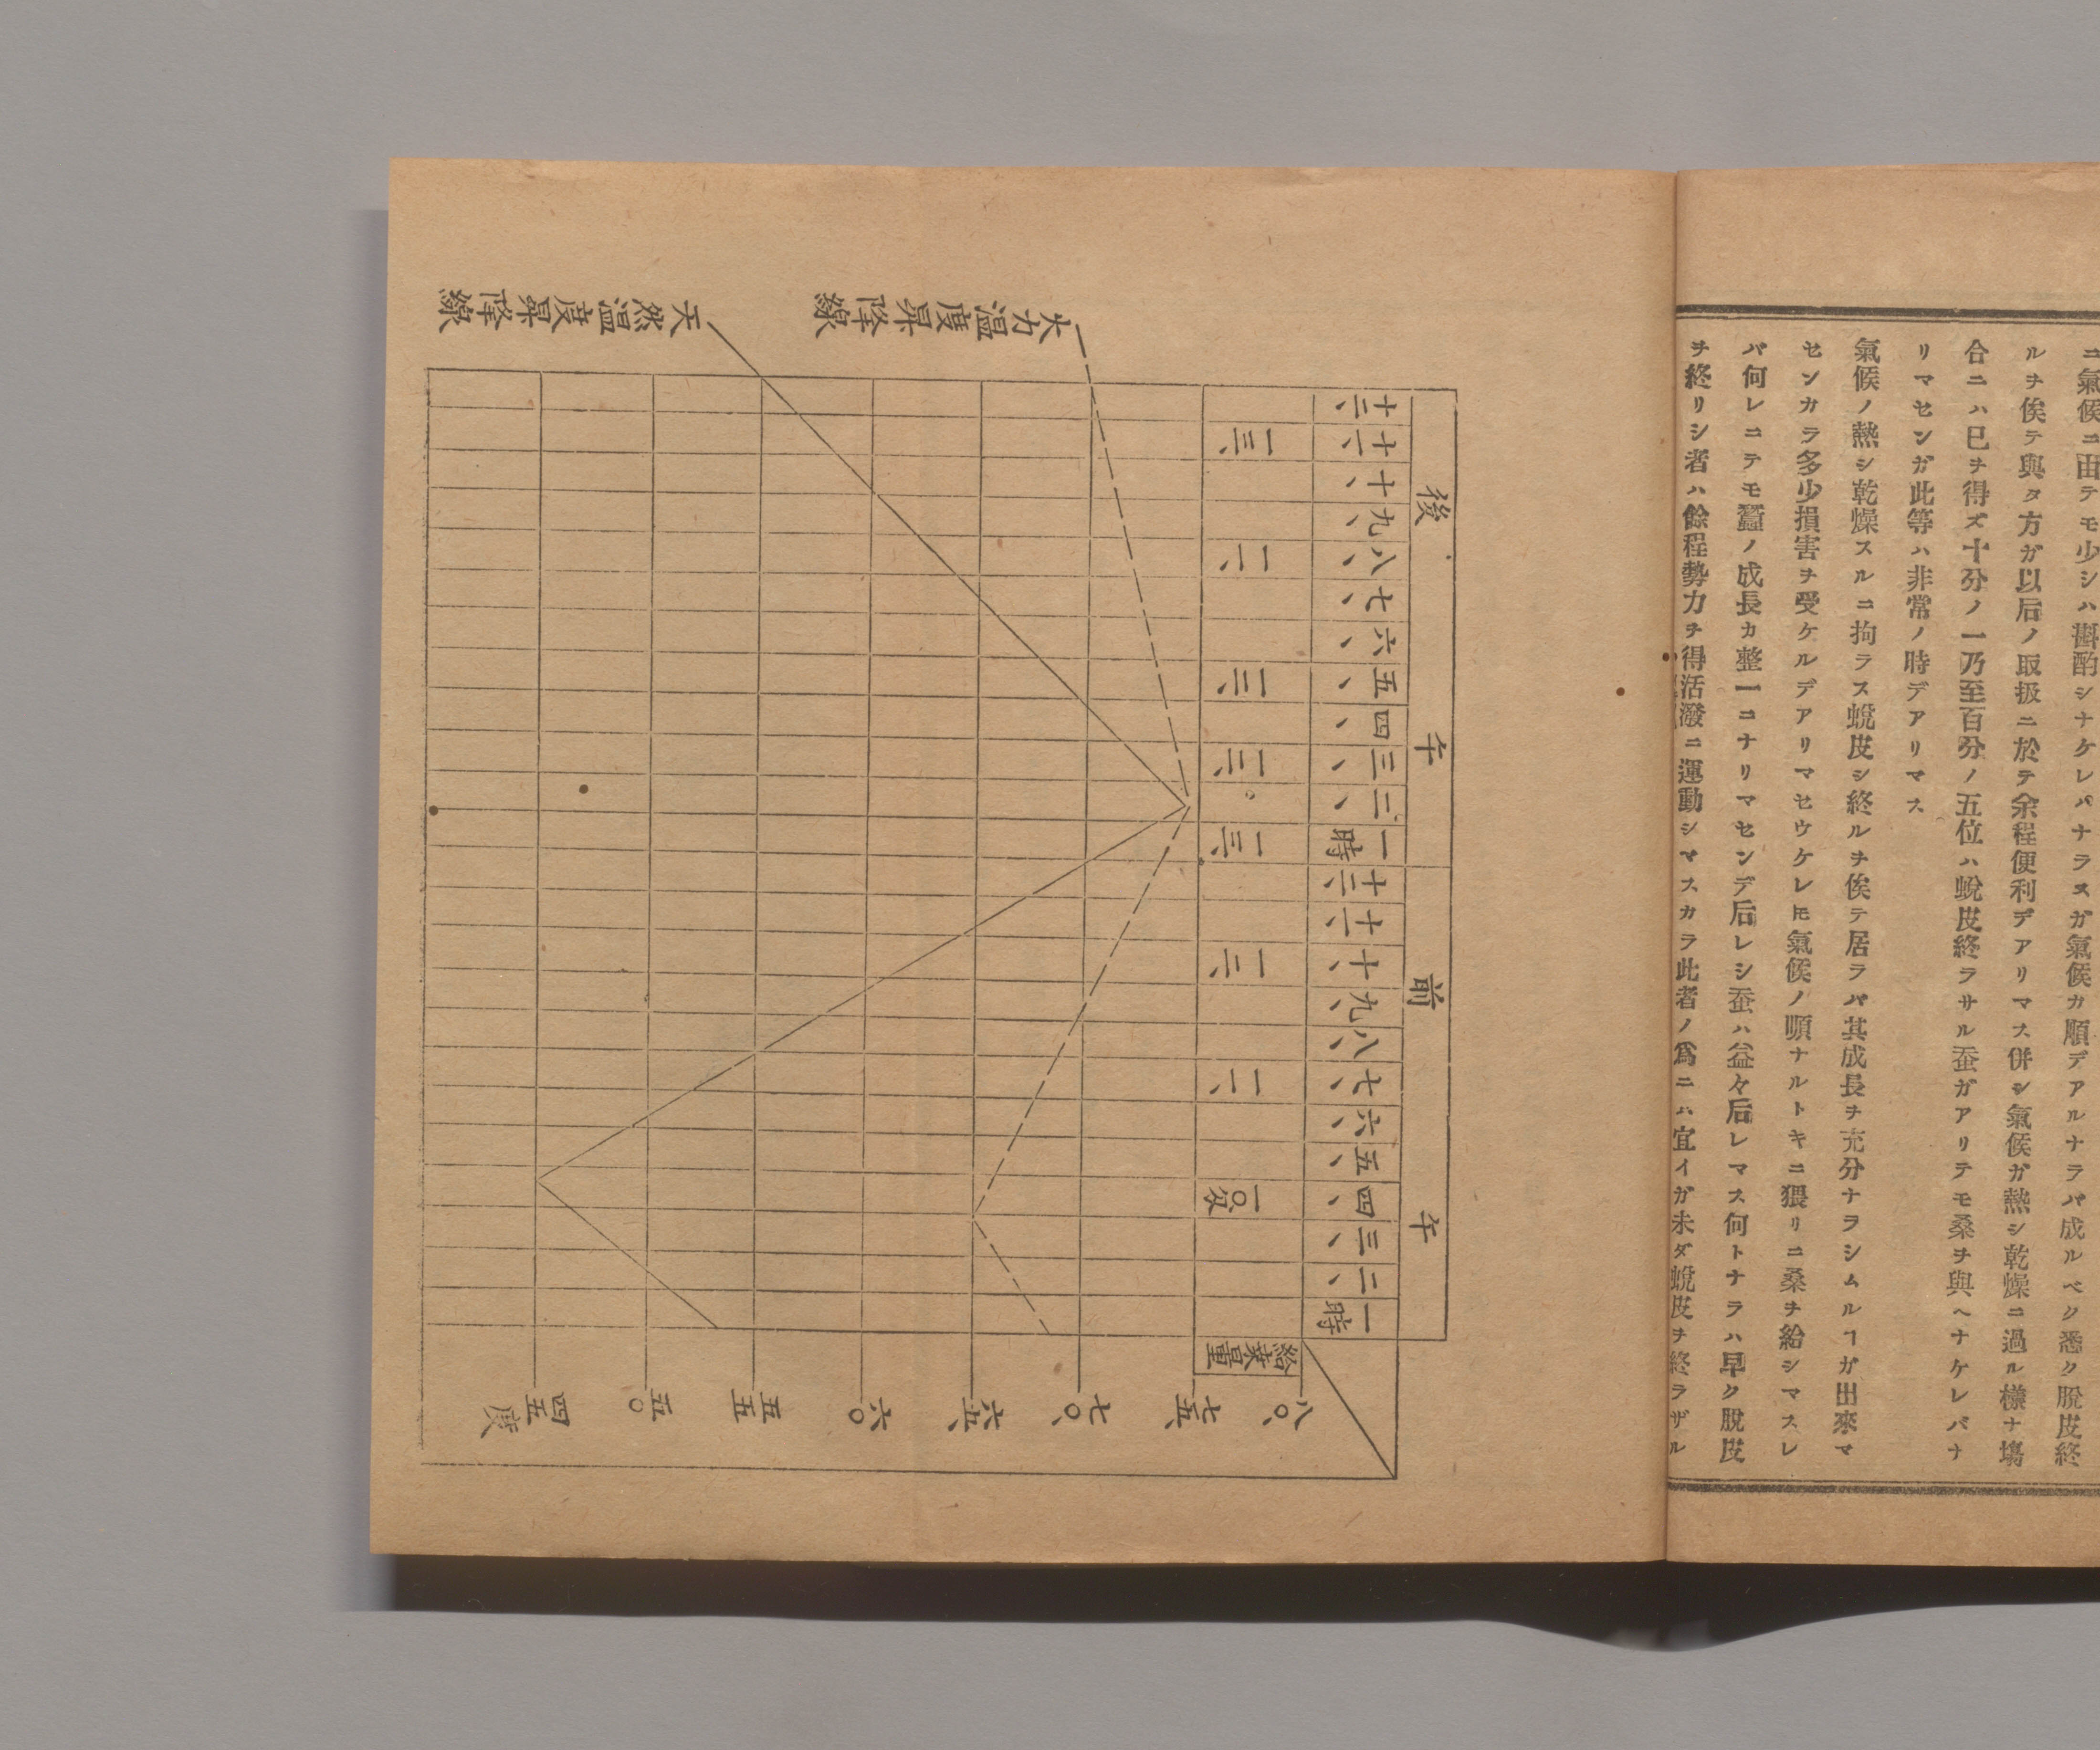 ニ氣候ニ由テモ少シハ斟酌シナケレバナラヌガ氣候カ順デアルナラバ成ルベク悉ク脱皮終
ルヲ俟テ與タ方ガ以后ノ取扱ニ於テ余程便利デアリマス併シ氣候ガ熱シ乾燥ニ過ル樣ナ塲
合ニハ已ヲ得ズ十分ノ一乃至百分ノ五位ハ蛻皮終ラサル蚕ガアリテモ桑ヲ與ヘナケレバナ
リマセンガ此等ハ非常ノ時デアリマス
氣候ノ熱シ乾燥スルニ拘ラス蛻皮シ終ルヲ俟テ居ラバ其成長ヲ充分ナラシムルヿガ出來マ
センカラ多少損害ヲ受ケルデアリマセウケレ𪜈氣候ノ順ナルトキニ猥リニ桑ヲ給シマスレ
バ何レニテモ蠶ノ成長カ整一ニナリマセンデ后レシ蚕ハ益々后レマス何トナラハ早ク脱皮
ヲ終リシ者ハ餘程勢力ヲ得活潑ニ運動シマスカラ此者ノ爲ニハ宜イガ未ダ蛻皮ヲ終ラザル
午前 午後
一時 二、 三、 四、 五、 六、 七、 八、 九、 十、 十一 十二 一時 二、 三、 四、 五、 六、 七、 八、 九、 十、 十一 十二
給葉量 一〇匁 一二、 一三、 一三、 一三、 一三、 一二、 一三、
八〇、
七五、
七〇、
六五、
六〇
五五
五〇
四五度
火力温度昇降線
天然温度昇降線